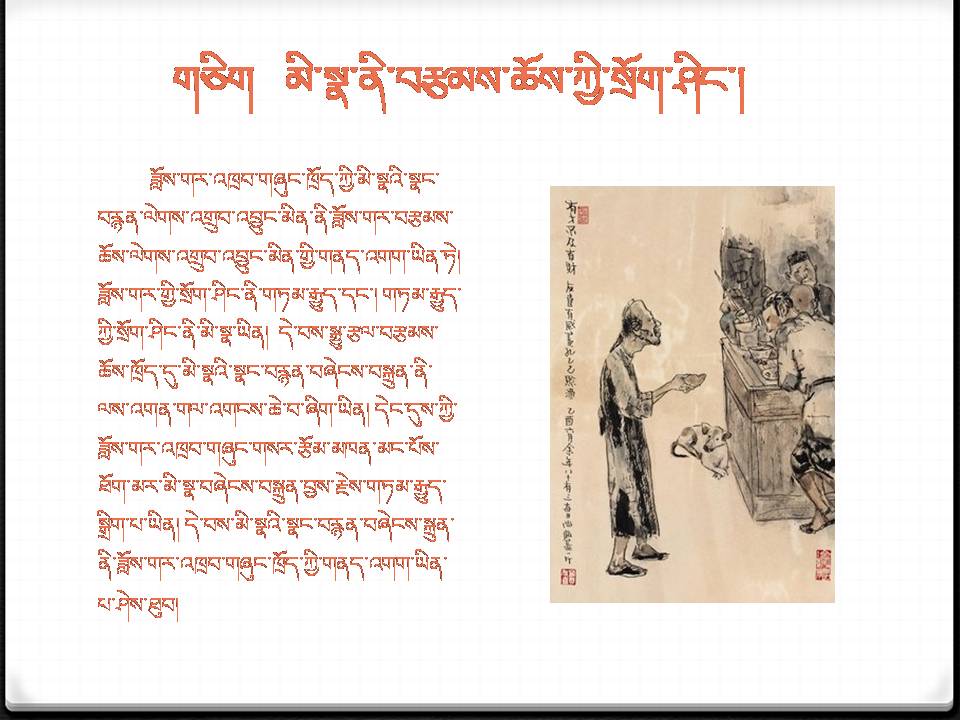 གཅིག མི་སྣ་ནི་བརྩམས་ཆོས་ཀྱི་སྲོག་ཤིང་།
ཟློས་གར་འཁྲབ་གཞུང་ཁྲོད་ཀྱི་མི་སྣའི་སྣང་
བརྙན་ལེགས་འགྲུབ་འབྱུང་མིན་ནི་ཟློས་གར་བརྩམས་
ཆོས་ལེགས་འགྲུབ་འབྱུང་མིན་གྱི་གནད་འགག་ཡིན་ཏེ།
ཟློས་གར་གྱི་སྲོག་ཤིང་ནི་གཏམ་རྒྱུད་དང་། གཏམ་རྒྱུད་
ཀྱི་སྲོག་ཤིང་ནི་མི་སྣ་ཡིན། དེ་བས་སྒྱུ་རྩལ་བརྩམས་
ཆོས་ཁྲོད་དུ་མི་སྣའི་སྣང་བརྙན་བཞེངས་བསྐྲུན་ནི་
ལས་འགན་གལ་འགངས་ཆེ་བ་ཞིག་ཡིན། དེང་དུས་ཀྱི་
ཟློས་གར་འཁྲབ་གཞུང་གསར་རྩོམ་མཁན་མང་པོས་
ཐོག་མར་མི་སྣ་བཞེངས་བསྐྲུན་བྱས་རྗེས་གཏམ་རྒྱུད་
སྒྲིག་པ་ཡིན། དེ་བས་མི་སྣའི་སྣང་བརྙན་བཞེངས་སྐྲུན་
ནི་ཟློས་གར་འཁྲབ་གཞུང་ཁྲོད་ཀྱི་གནད་འགག་ཡིན་
པ་ཤེས་ཐུབ།